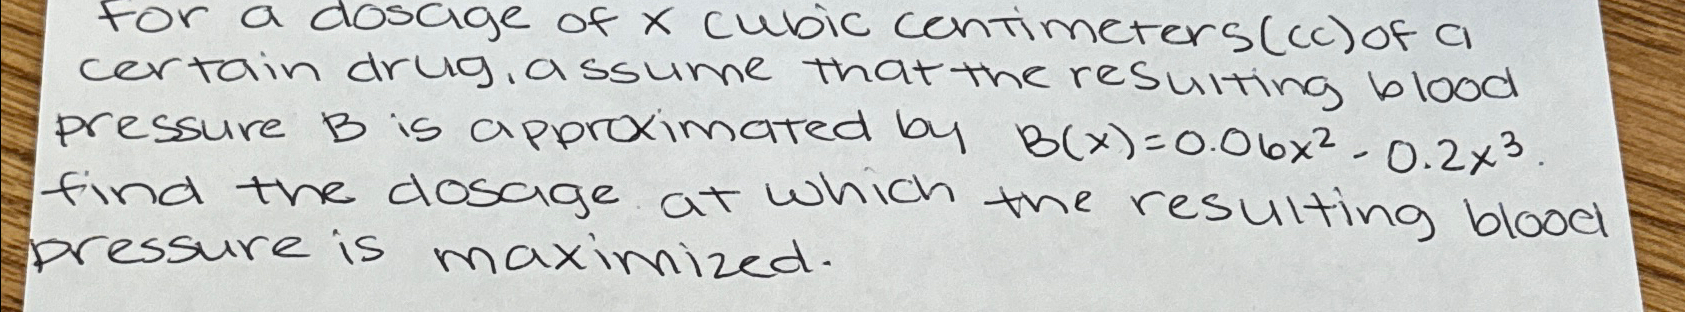 for a dosage of x cubic centimeters (cc) of a
certain drug, assume that the resulting blood
pressure B is approximated by B(x)=0.06x² - 0.2x³.
find the dosage at which the resulting blood
pressure is maximized.